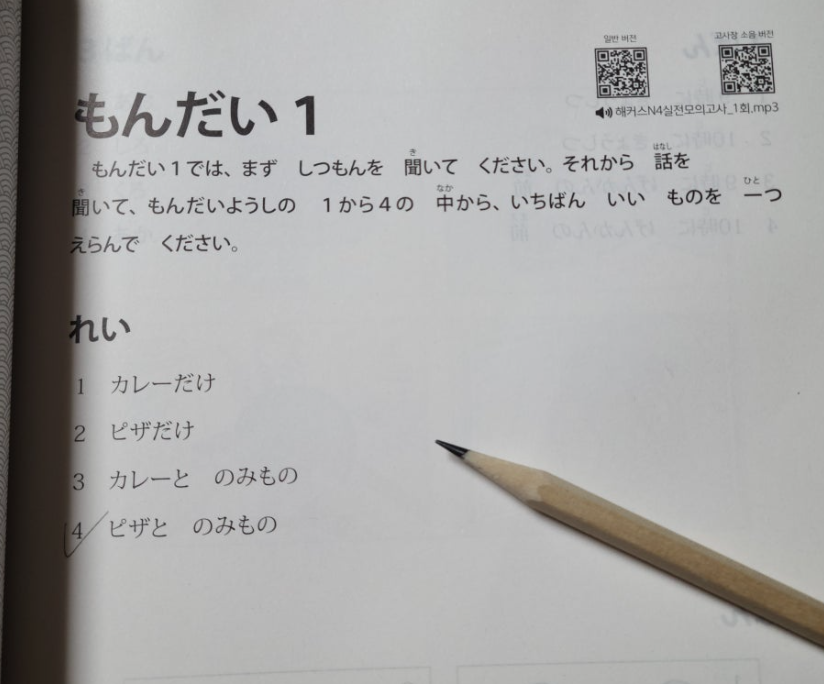 일반 버전
고사장 소음 버전
해커스N4실전모의고사_1회.mp3
もんだい 1
もんだい1では、まず しつもんを 聞いて ください。それから 話を
聞いて、もんだいようしの 1から4の 中から、いちばん いい ものを 一つ
えらんで ください。
れい
1 カレーだけ
2 ピザだけ
3 カレーと のみもの
4 ピザと のみもの